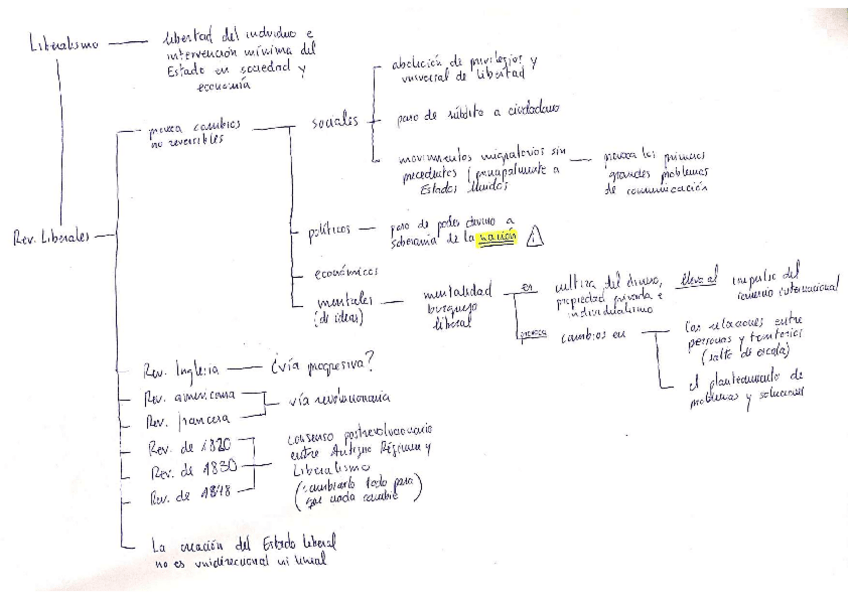 Liberalismo
libertad del individuo e
intervención mínima del
Estado en sociedad y
economía
Rev. Liberales
provoca cambios
no reversibles
sociales
abolición de privilegios y
universal de libertad
paso de súbdito a ciudadano
movimientos migratorios sin
precedentes (principalmente a
Estados Unidos
provoca los primeros
grandes problemas
de comunicación
políticos
paso de poder divino a
soberanía de la nación
económicos
mentales
(de ideas)
mentalidad
burguesa
liberal
es
cultura del dinero,
propiedad privada e
individualismo
lleva al
impulso del
comercio internacional
provoca
cambios en
las relaciones entre
personas y territorios
(salto de escala)
el planteamiento de
problemas y soluciones
Rev. Inglesa
¿vía progresiva?
Rev. americana
Rev. francesa
vía revolucionaria
Rev. de 1820
Rev. de 1830
Rev. de 1848
consenso postrevolucionario
entre Antiguo Régimen y
Liberalismo
(cambiarlo todo para
que nada cambie)
La creación del Estado liberal
no es unidireccional ni lineal